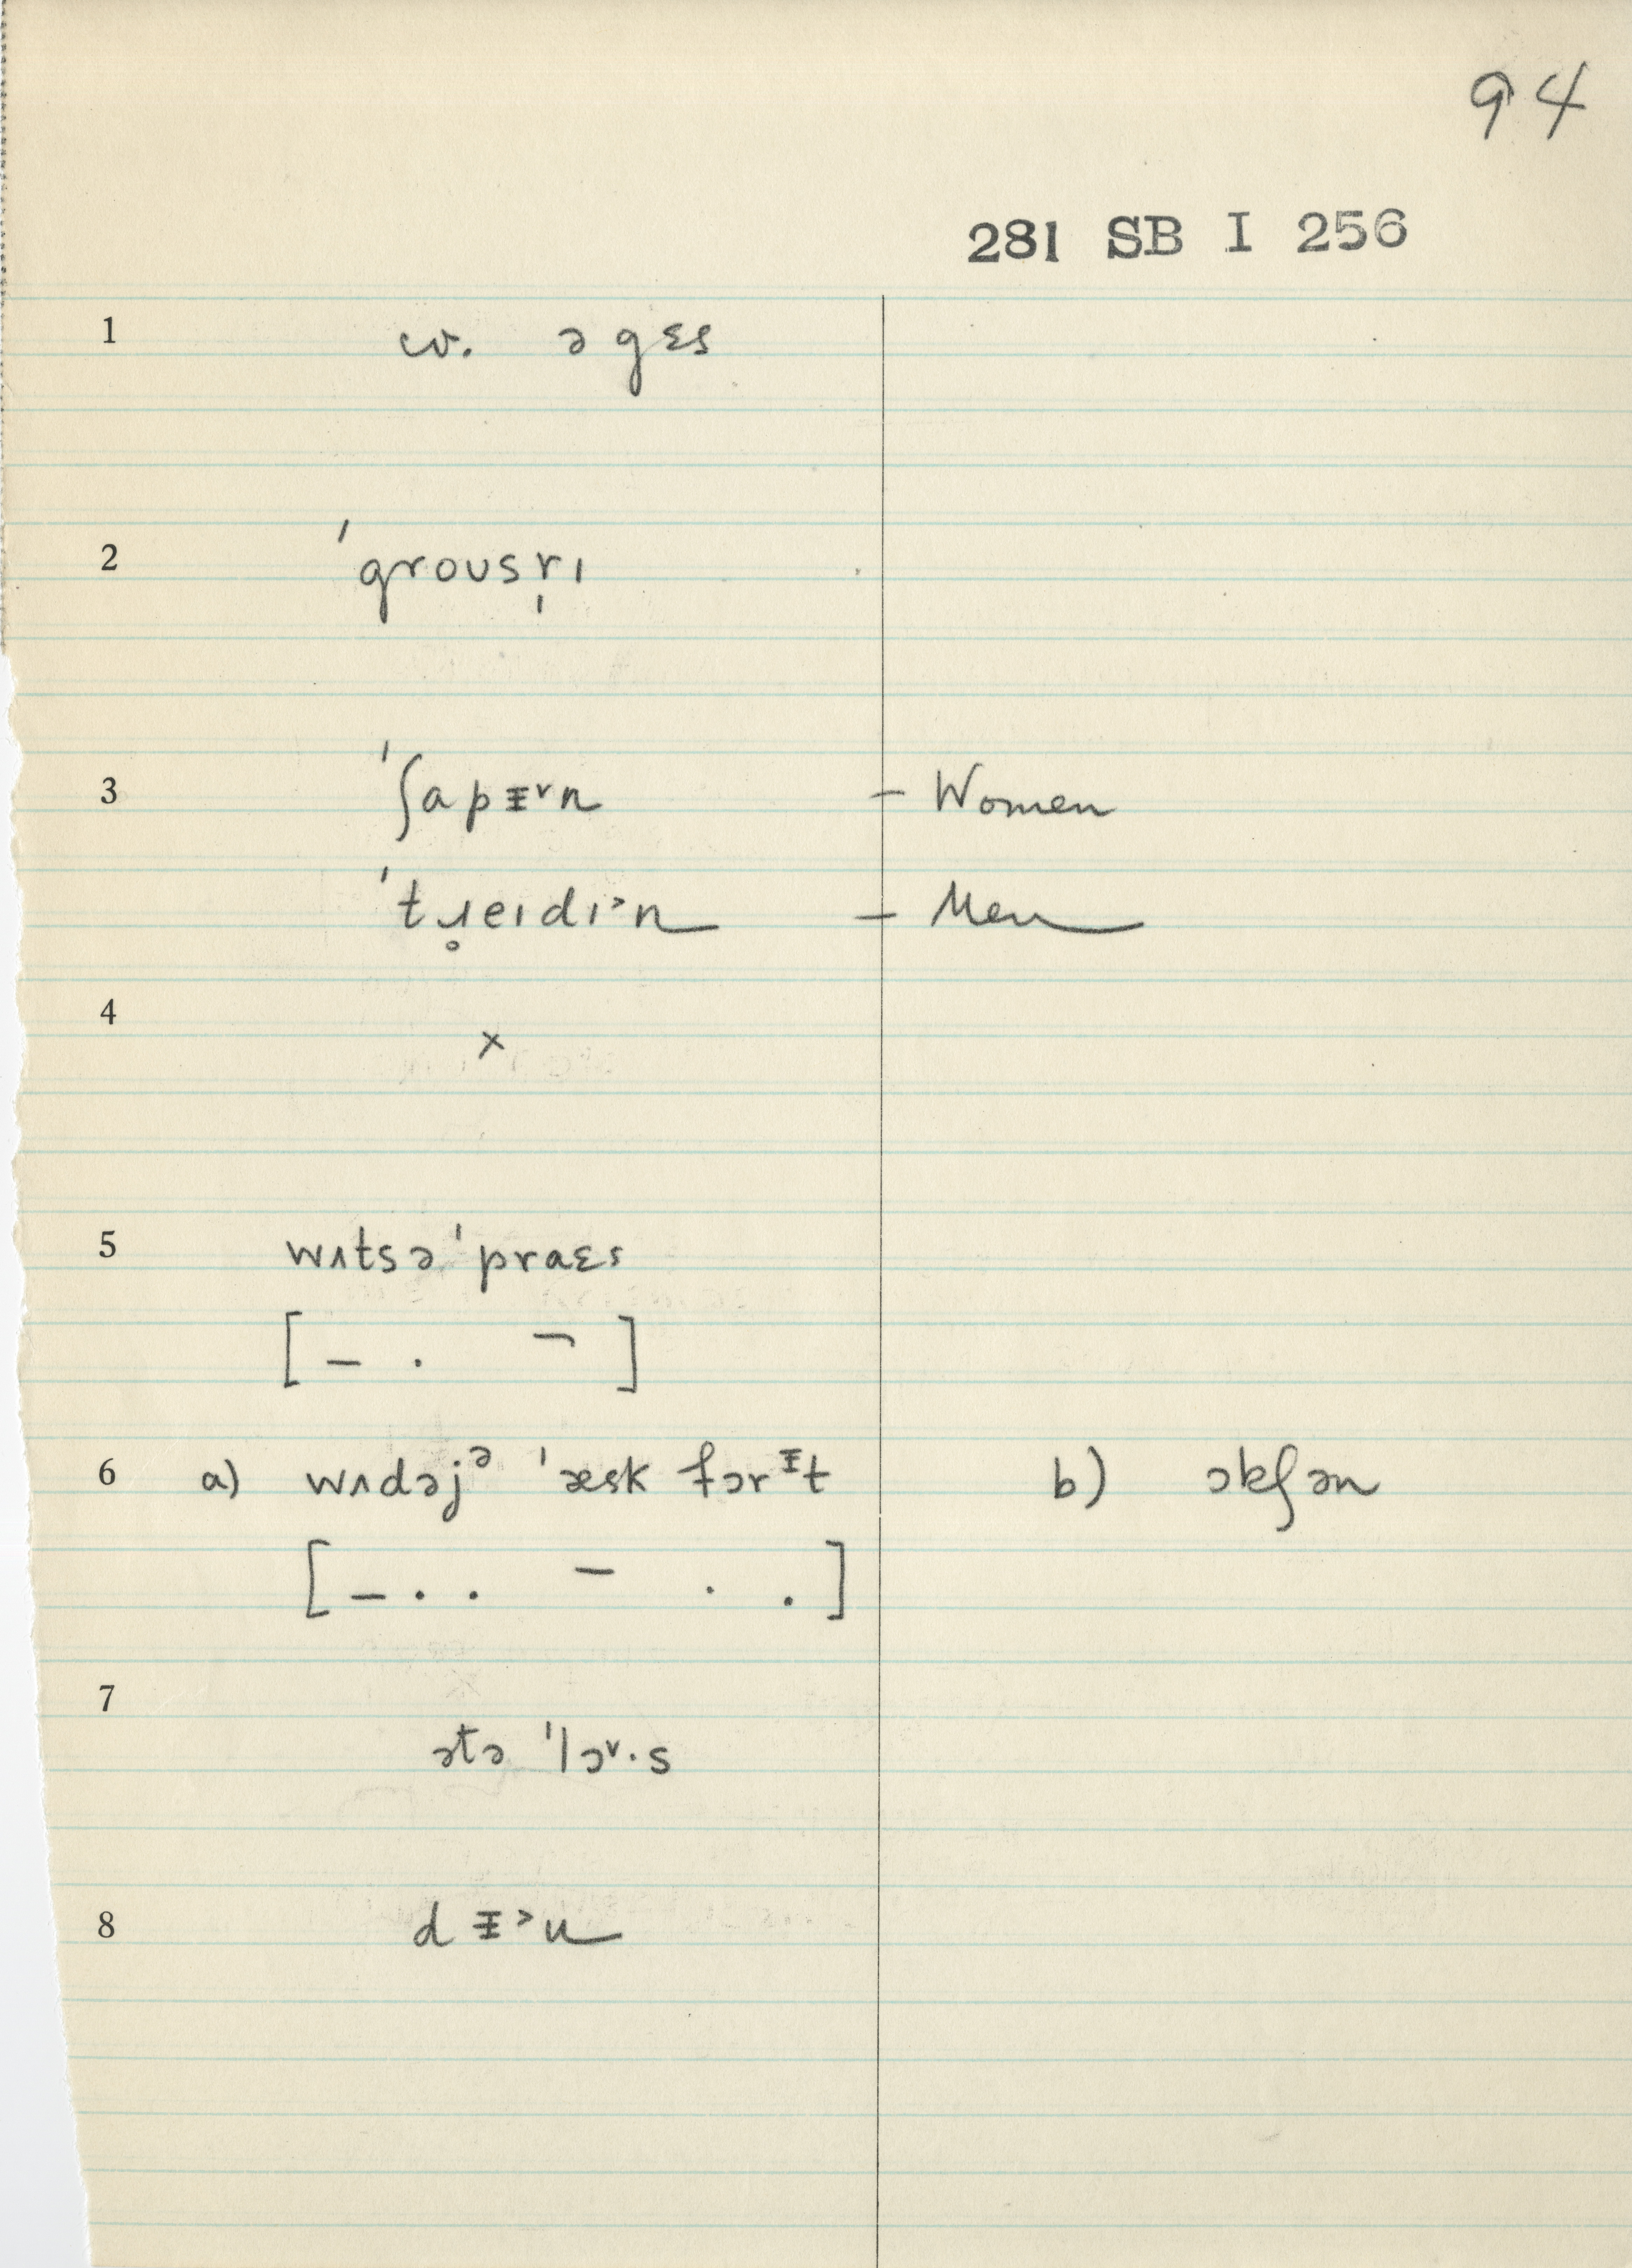 94
281 SB I 256
1 cv. ə gɛs
2 ˈgrousr̩ɪ
3 ˈʃapᵻ˅n – Women
ˈtɹ̥eɪdɪ˃n – Men
4 ×
5 wʌtsə ˈpraɛs
[ – . ¬ ]
6 a) wʌdəjᵊ ˈæsk fɔrᵻt b) ɔkʃən
[ – . . – . . ]
7 ətə ˈlɔ˅·s
8 dᵻ˃n